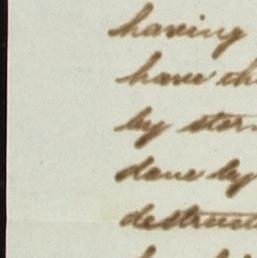 having
have th
by stor
done by
destruct